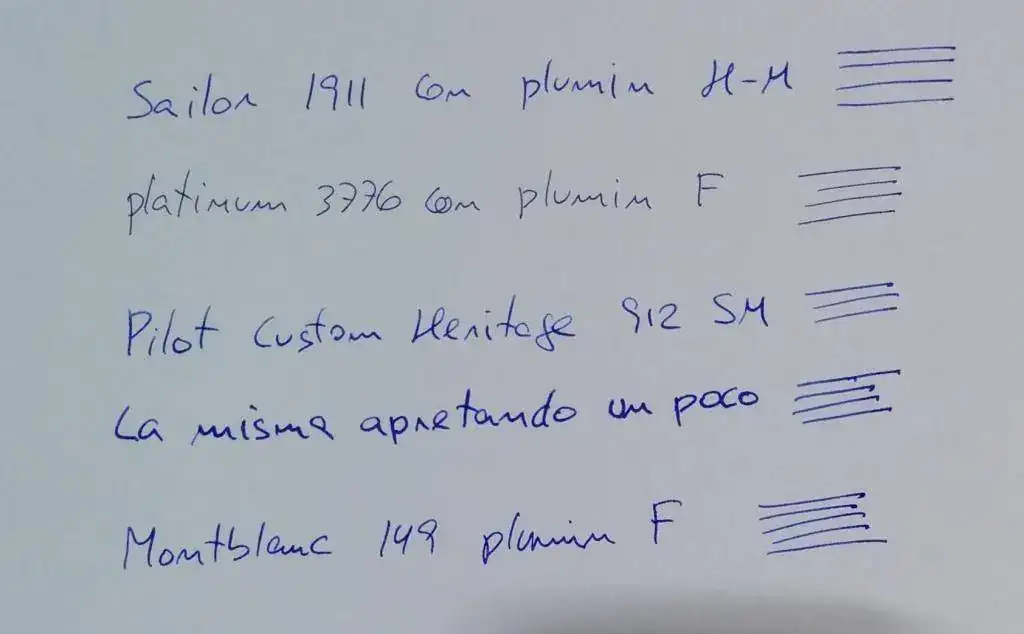 Sailor 1911 con plumin H-M
platinum 3776 con plumin F
Pilot Custom Heritage 912 SM
La misma apretando un poco
Montblanc 149 plumin F